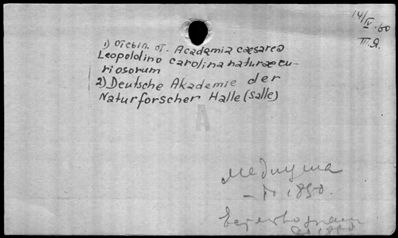 14/IV-60
П.Я.
1) отсыл. от. Academia caesarea
Leopoldino carolina naturae cu-
riosorum
2) Deutsche Akademie der
Naturforscher Halle (Salle)
медицина
1850